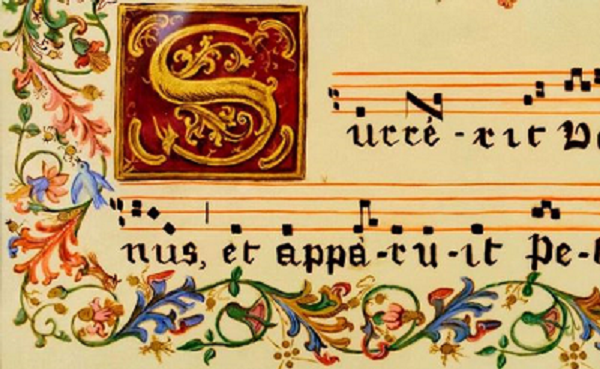 Surré-xit Do
nus, et appá-ru-it Pe-